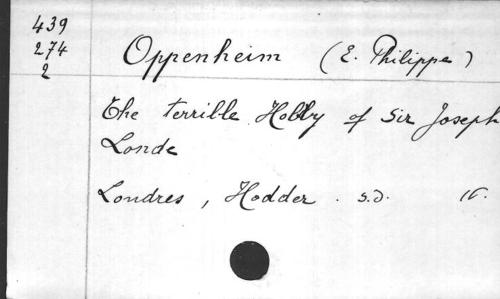 439
274
2
Oppenheim (E. Philippe)
The terrible Hobby of Sir Joseph
Londe
Londres, Hodder. s.d. 16.